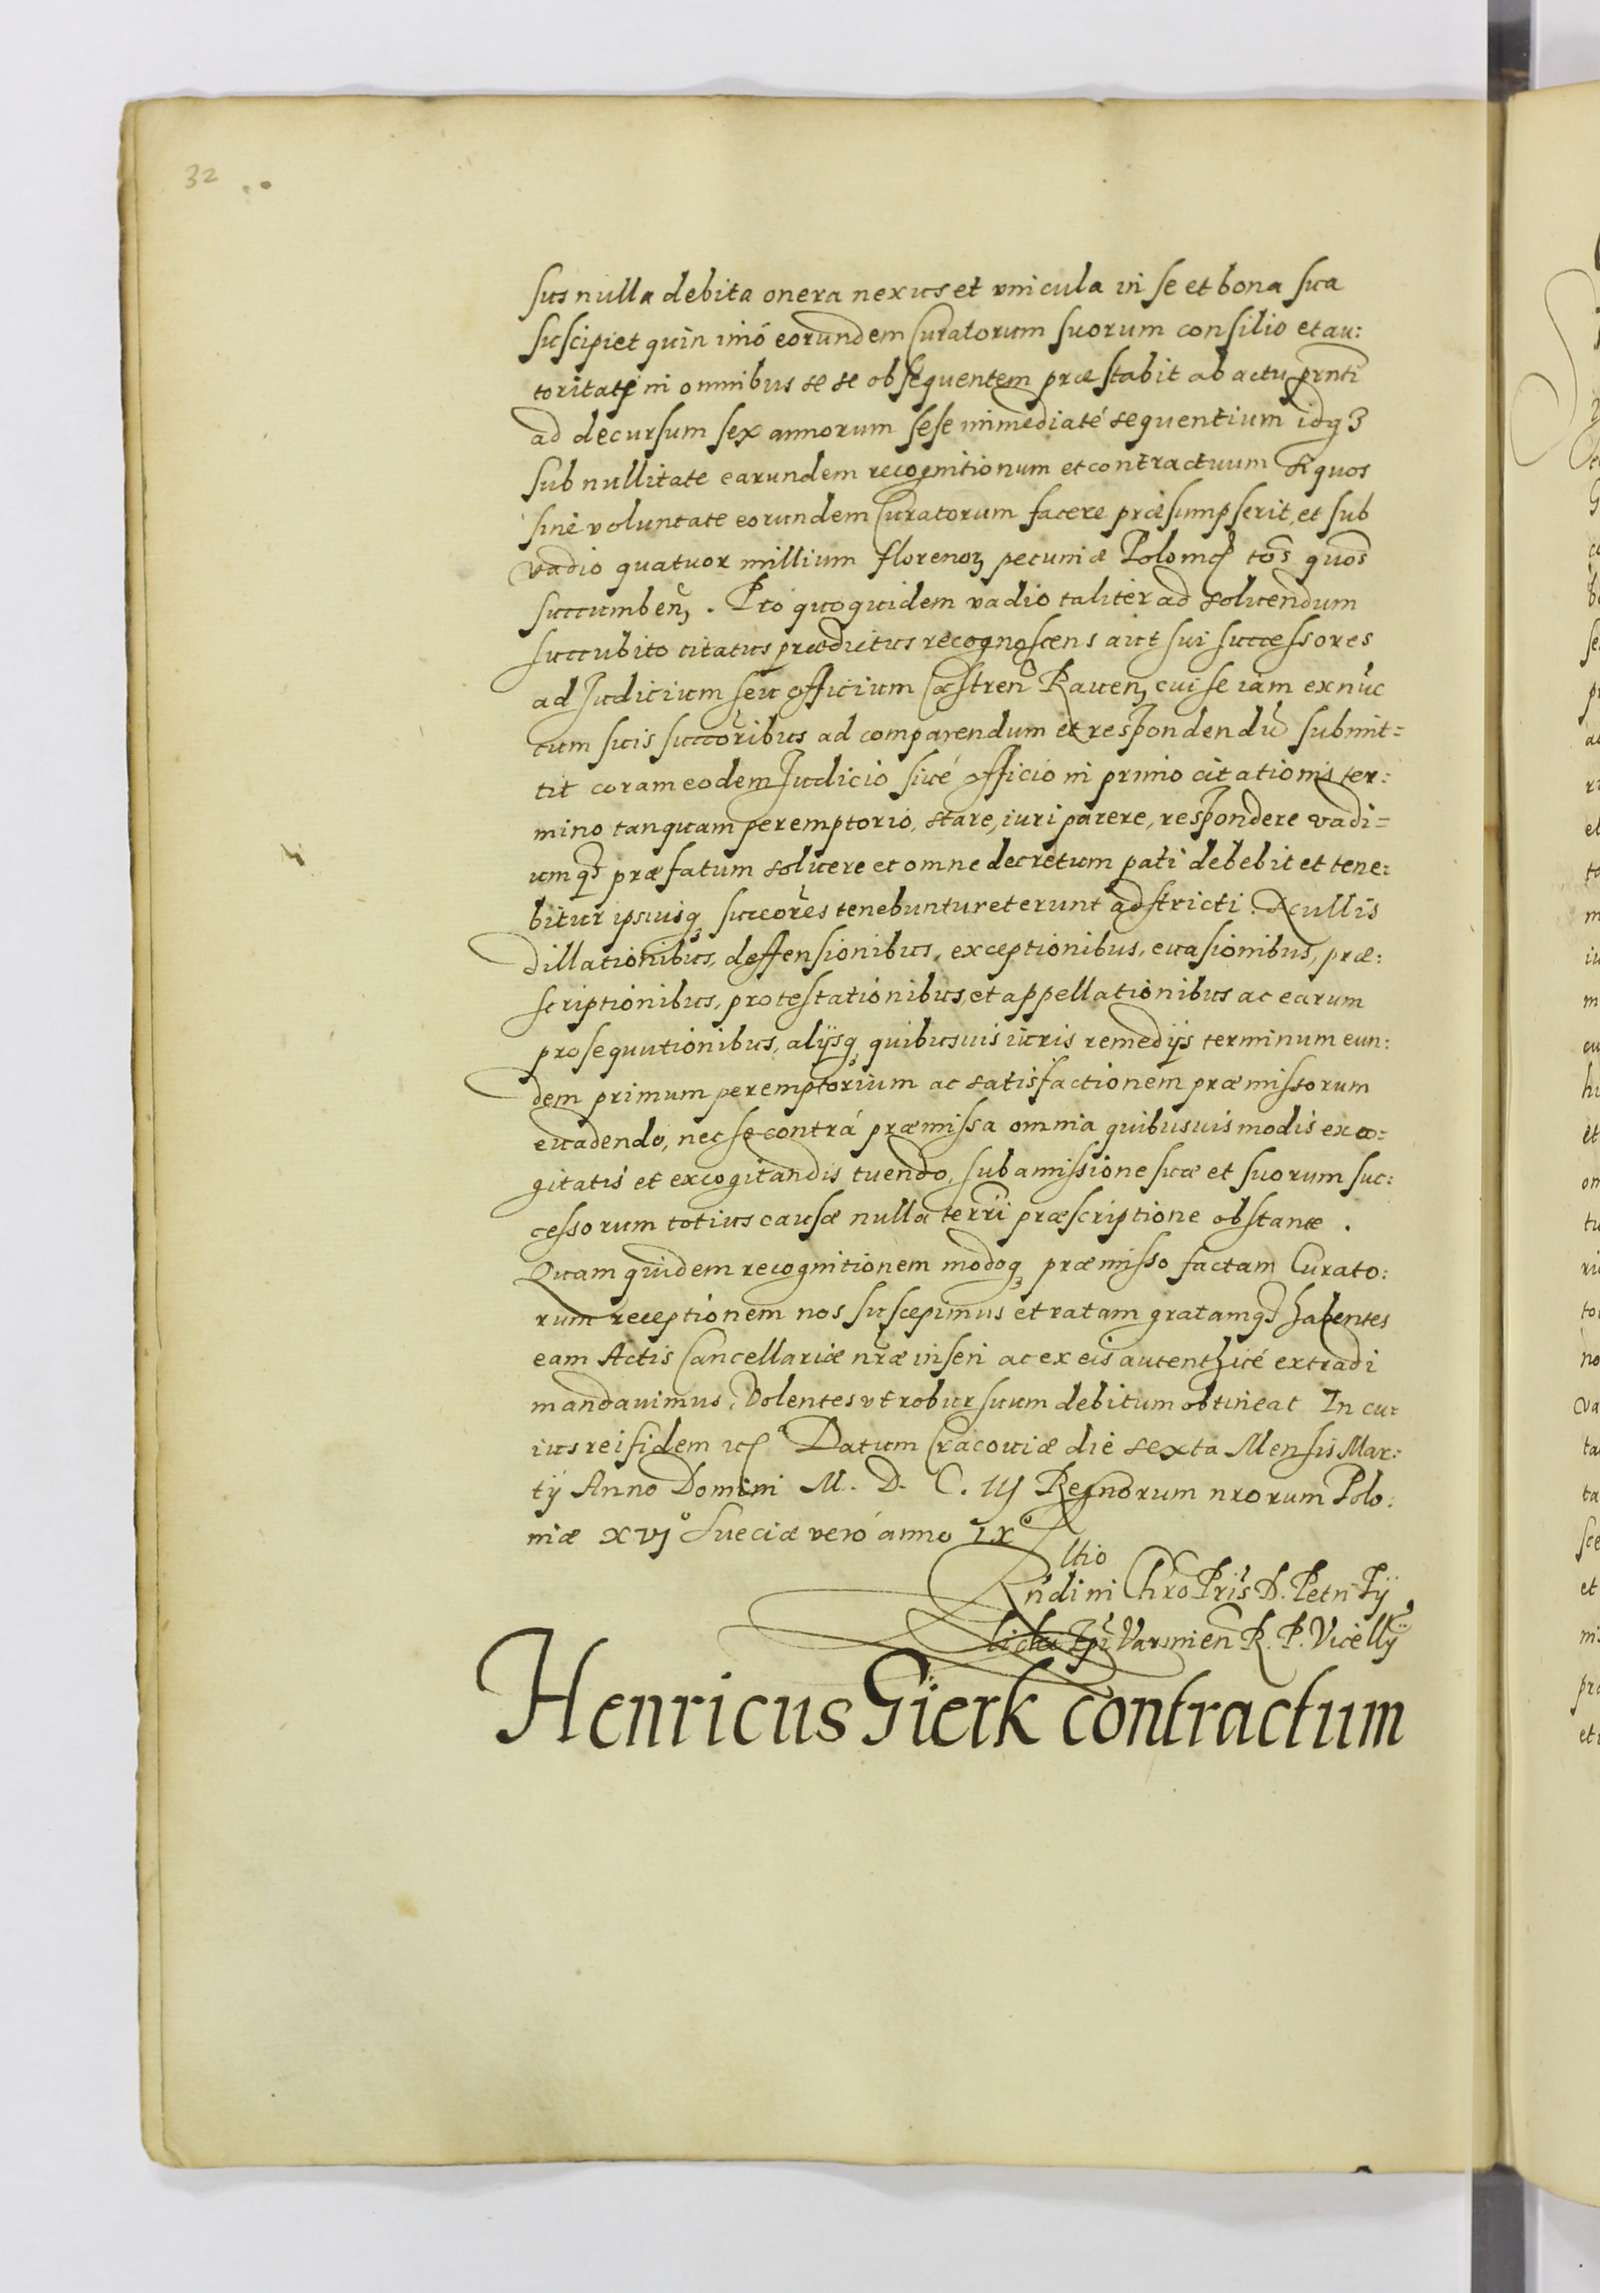 32
sus nulla debita onera nexus et vincula in se et bona sua
suscipiet quin imó eorundem Curatorum suorum consilio et au:
toritate in omnibus se se obsequentem præstabit ab actu prnti
ad decursum sex annorum sese immediaté sequentium idq3
sub nullitate earundem recognitionum et contractuum si quos
sine voluntate eorundem Curatorum facere præsumpserit, et sub
vadio quatuor millium florenoꝝ pecuniæ Polonicꝭ tōs quos
succumbeñ. Pro quo quidem vadio taliter ad soluendum
succubito citatus prædictus recognoscens aut sui successores
ad Judicium seu officium Castreñ Raueñ cui se iam ex nūc
cum suis succōribus ad comparendum et respondendū submit=
tit coram eodem Judicio siué officio in primo citationis ter:
mino tanquam peremptorio, stare, iuri parere, respondere vadi=
umqꝫ præfatum soluere et omne decretum pati debebit et tene:
bitur ipsiusqꝫ succōres tenebuntur et erunt adstricti. Nullis
dillationibus, deffensionibus, exceptionibus, euasionibus, præ:
scriptionibus, protestationibus, et appellationibus ac earum
prosequutionibus, alijsqꝫ quibusuis iuris remedijs terminum eun:
dem primum peremptorium ac satisfactionem præmissorum
euadendo, nec se contrá præmissa omnia quibusuis modis exco=
gitatis et excogitandis tuendo, sub amissione suæ et suorum suc:
cessorum totius causæ nulla terrī præscriptione obstante.
Quam quidem recognitionem modoqꝫ præmisso factam Curato:
rum receptionem nos suscepimus et ratam gratamqꝫ habentes
eam Actis Cancellariæ nr̄æ inseri ac ex eis autenthicé extradi
mandauimus, Volentes vt robur suum debitum obtineat In cu:
ius rei fidem Datum Cracouiæ die sexta Mensis Mar:
tij Anno Domini M. D. C. IIJ Regnorum nrorum Polo:
niæ XVJ° Sueciæ veró anno IX°
ltio
Rndi in Chro Pris D. Petri Ty
licki Epi Varmieñ R. P. Vicelly
Henricus Gierk contractum